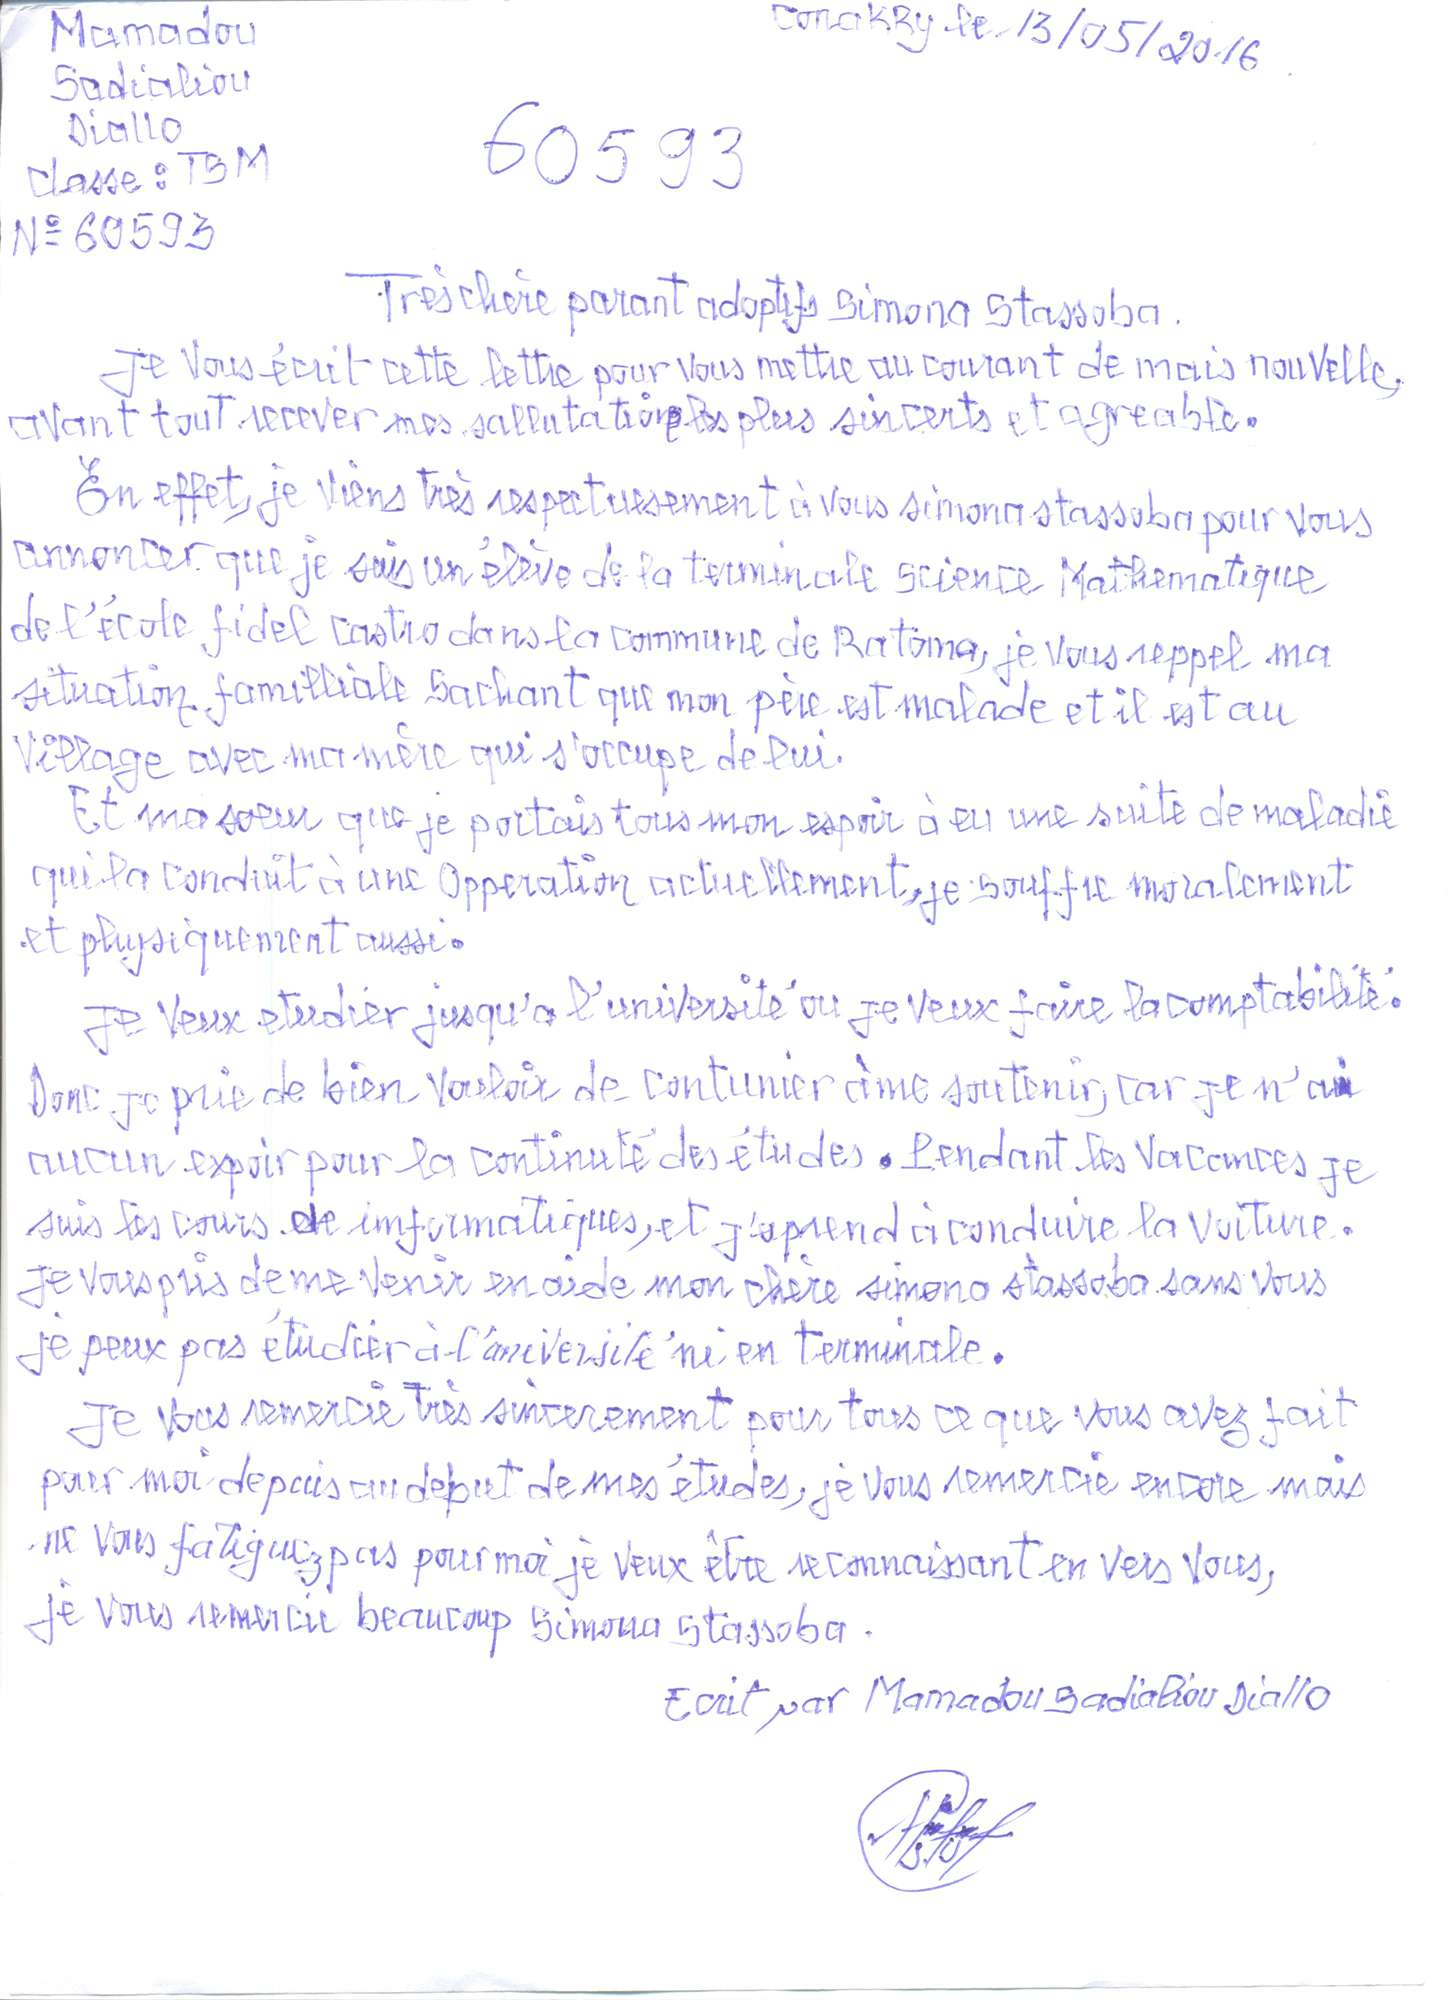 Mamadou
Sadialiou
Diallo
Classe : TSM
Nº 60593
Conakry le 13/05/2016
60593
Très chère parant adoptifs Simona Stassoba.
Je vous écrit cette lettre pour vous mettre au courant de mais nouvelle,
avant tout recever mes sallutation les plus sincerts et agreable.
En effet, je viens très respectuesement à vous simona stassoba pour vous
annoncer que je suis un élève de la terminale science Mathematique
de l'école fidel castro dans la commune de Ratoma, je vous reppel ma
situation familliale Sachant que mon père est malade et il est au
village avec ma mère qui s'occupe de lui.
Et ma soeur que je portais tous mon espoir à eu une suite de maladie
qui la conduit à une Opperation actuellement, je souffre moralement
et physiquement aussi.
Je veux etudier jusqu'a l'université ou je veux faire la comptabilité.
Donc je prie de bien vouloir de contunier à me soutenir, car je n'ai
aucun expoir pour la continuté des études. Pendant les vacances je
suis les cours de informatiques, et j'aprend à conduire la voiture.
Je vous pris de me venir en aide mon chère simona stassoba sans vous
je peux pas étudier à l'université ni en terminale.
Je vous remercie très sincerement pour tous ce que vous avez fait
pour moi depuis au debut de mes études, je vous remercie encore mais
ne vous fatiguez pas pour moi je veux être reconnaissant en vers vous,
je vous remercie beaucoup Simona Stassoba.
Ecrit par Mamadou Sadialiou Diallo